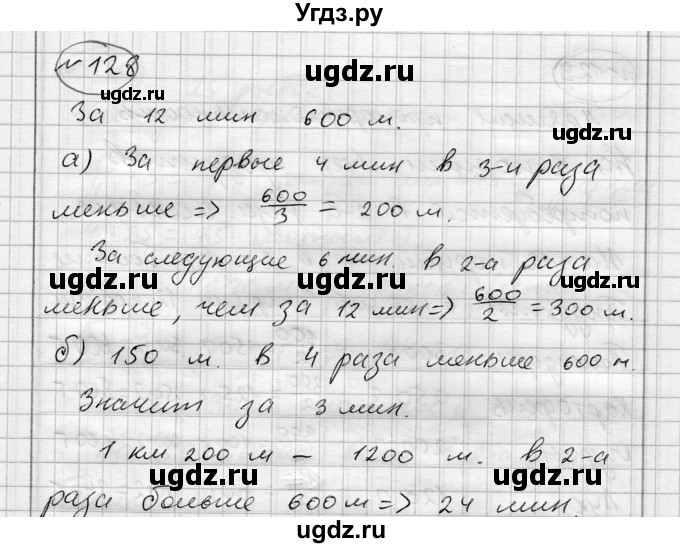 Угдз.ру
№ 128
За 12 мин 600 м.
а) За первые 4 мин в 3-и раза
меньше => 600/3 = 200 м.
За следующие 6 мин. в 2-а раза
меньше, чем за 12 мин => 600/2 = 300 м.
б) 150 м. в 4 раза меньше 600 м.
Значит за 3 мин.
1 км 200 м – 1200 м. в 2-а
раза больше 600 м => 24 мин.
ugdz.ru
ugdz.ru
ugdz.ru
ugdz.ru
ugdz.ru
ugdz.ru
ugdz.ru
ugdz.ru
ugdz.ru
ugdz.ru